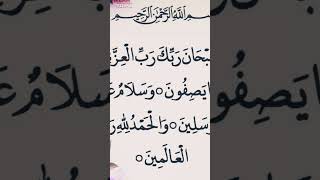 سم الله الرحمن الرحيم
بْحَانَ رَبِّكَ رَبِّ الْعِزَّ
ا يَصِفُونَ ۝ وَسَلَامٌ عَ
رْسَلِينَ ۝ وَالْحَمْدُ لِلّٰهِ رَ
الْعَالَمِينَ ۝